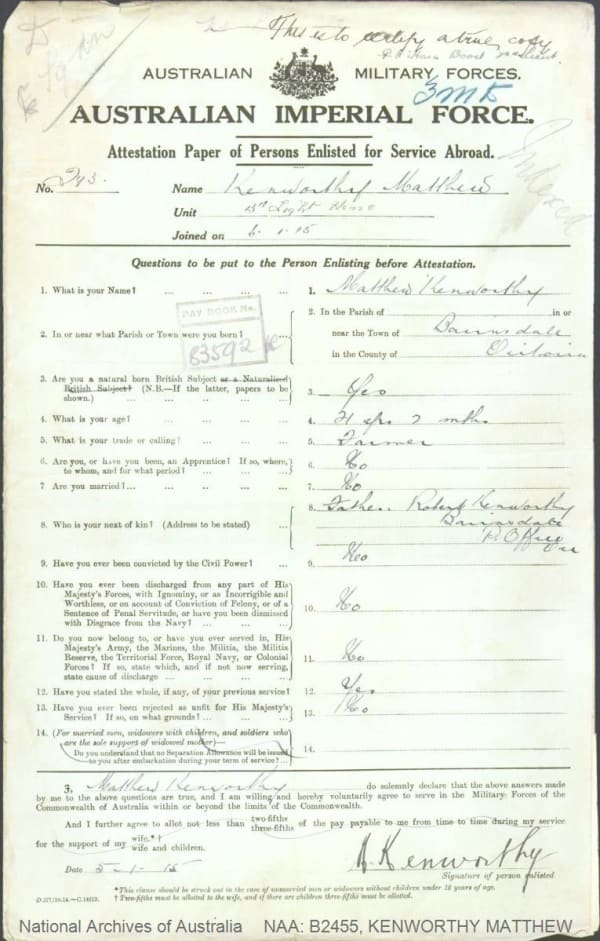 This is to certify a true copy
AUSTRALIAN MILITARY FORCES.
3 M D
AUSTRALIAN IMPERIAL FORCE.
Attestation Paper of Persons Enlisted for Service Abroad.
Indexed
No. 293. Name Kenworthy Matthew
Unit Light Horse
Joined on 6-1-15
Questions to be put to the Person Enlisting before Attestation.
1. What is your Name? ... ... ... ... 1. Matthew Kenworthy
PAY BOOK No.
83592
2. In or near what Parish or Town were you born? ... 2. In the Parish of in or
near the Town of Bairnsdale
in the County of Victoria
3. Are you a natural born British Subject or a Naturalised
British Subject? (N.B.—If the latter, papers to be
shown.) ... ... ... ... 3. Yes
4. What is your age? ... ... ... ... 4. 21 yrs 7 mths
5. What is your trade or calling? ... ... ... 5. Farmer
6. Are you, or have you been, an Apprentice? If so, where,
to whom, and for what period? ... ... ... 6. No
7 Are you married?... ... ... ... ... 7. No
8. Who is your next of kin? (Address to be stated) ... 8. Father. Robert Kenworthy
Bairnsdale
P. Office
9. Have you ever been convicted by the Civil Power? ... 9. No
10. Have you ever been discharged from any part of His
Majesty's Forces, with Ignominy, or as Incorrigible and
Worthless, or on account of Conviction of Felony, or of a
Sentence of Penal Servitude, or have you been dismissed
with Disgrace from the Navy? ... ... ... 10. No
11. Do you now belong to, or have you ever served in, His
Majesty's Army, the Marines, the Militia, the Militia
Reserve, the Territorial Force, Royal Navy, or Colonial
Forces? If so, state which, and if not now serving,
state cause of discharge ... ... ... ... 11. No
12. Have you stated the whole, if any, of your previous service? 12. Yes
13. Have you ever been rejected as unfit for His Majesty's
Service? If so, on what grounds? ... ... ... 13. No
14. (For married men, widowers with children, and soldiers who
are the sole support of widowed mother)—
Do you understand that no Separation Allowance will be issued
to you after embarkation during your term of service?... 14.
I, Matthew Kenworthy do solemnly declare that the above answers made
by me to the above questions are true, and I am willing and hereby voluntarily agree to serve in the Military Forces of the
Commonwealth of Australia within or beyond the limits of the Commonwealth.
And I further agree to allot not less than two-fifths three-fifths of the pay payable to me from time to time during my service
for the support of my wife.*† wife and children.
Date 5-1-15 M. Kenworthy
Signature of person enlisted.
*This clause should be struck out in the case of unmarried men or widowers without children under 18 years of age.
† Two-fifths must be allotted to the wife, and if there are children three-fifths must be allotted.
D.277/10.14.—C.14613.
National Archives of Australia NAA: B2455, KENWORTHY MATTHEW